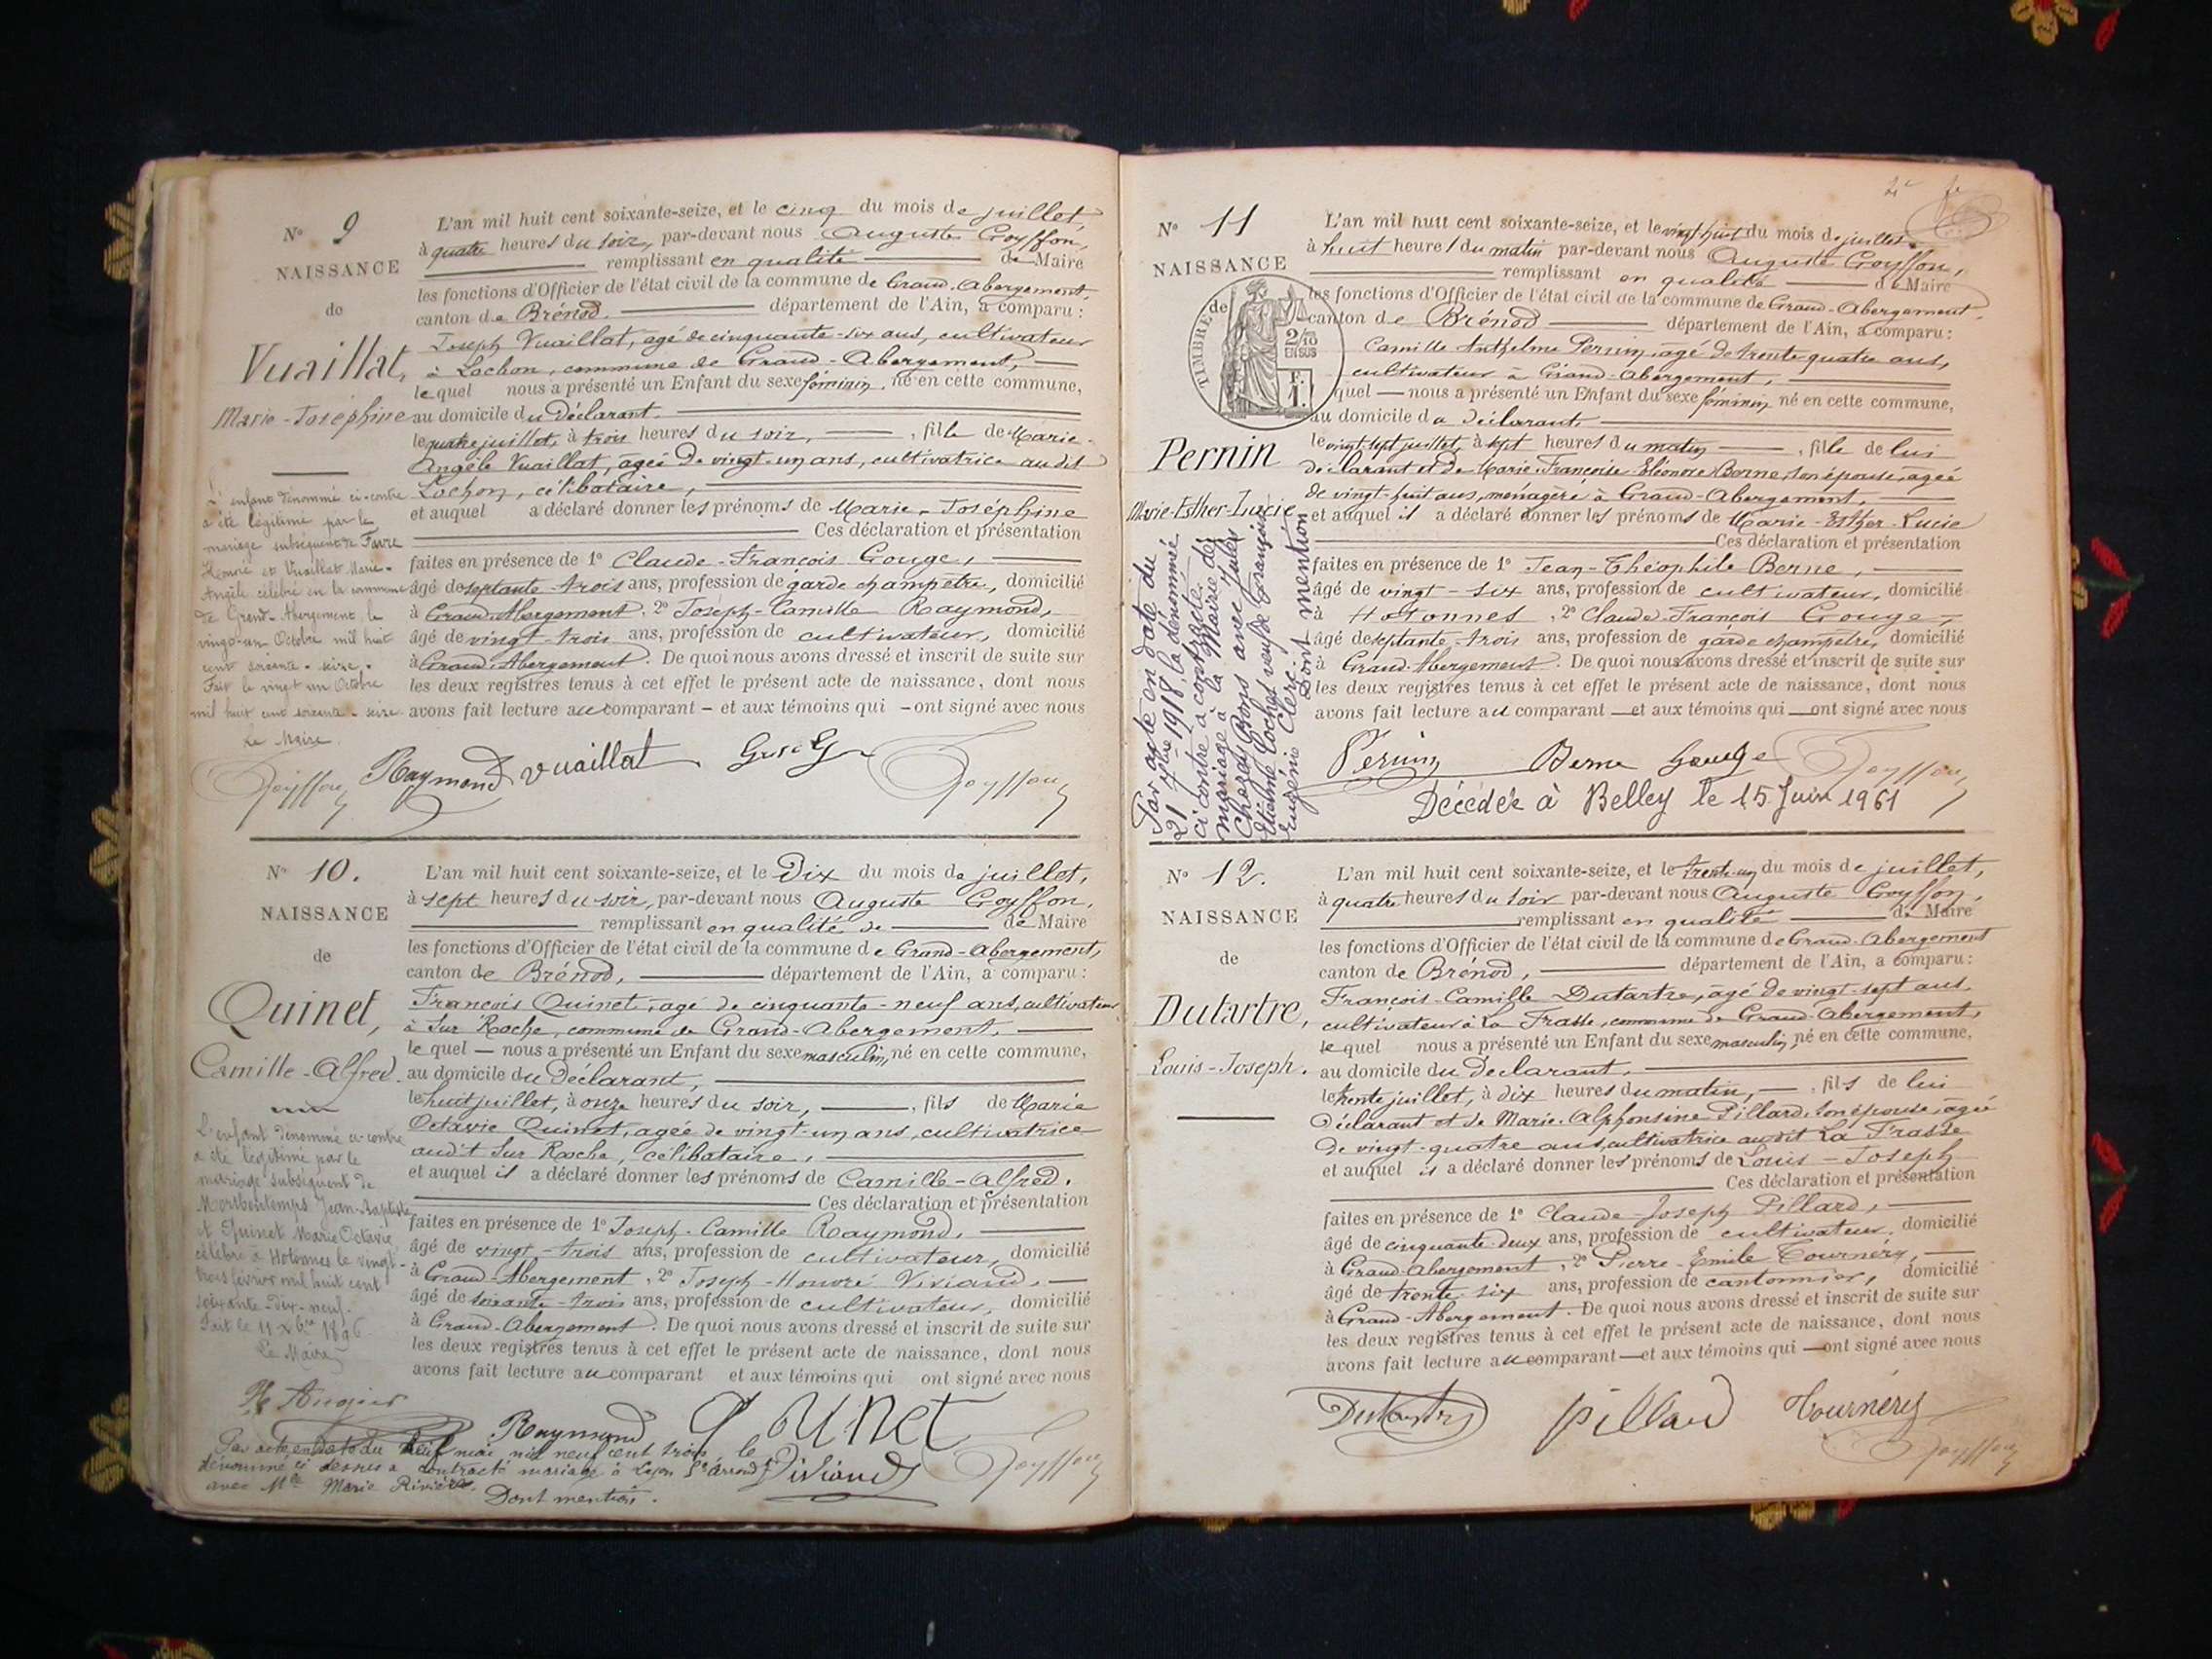 N° 9
NAISSANCE
de
Vuaillat,
Marie-Joséphine
L'an mil huit cent soixante-seize, et le cinq du mois de juillet,
à quatre heures du soir, par-devant nous Auguste Goyffon,
remplissant en qualité de Maire
les fonctions d'Officier de l'état civil de la commune de Grand-Abergement,
canton de Brénod. département de l'Ain, a comparu :
Joseph Vuaillat, agé de cinquante-six ans, cultivateur
à Lochon, commune de Grand-Abergement,
lequel nous a présenté un Enfant du sexe féminin, né en cette commune,
au domicile du Déclarant.
le quatre juillet, à trois heures du soir, , fille de Marie-
Angèle Vuaillat, agée de vingt-un ans, cultivatrice au dit
Lochon, célibataire,
et auquel a déclaré donner les prénoms de Marie-Joséphine
Ces déclaration et présentation
faites en présence de 1° Claude-François Gouge,
âgé de septante-trois ans, profession de garde champêtre, domicilié
à Grand-Abergement, 2° Joseph-Camille Raymond,
âgé de vingt-trois ans, profession de cultivateur, domicilié
à Grand-Abergement. De quoi nous avons dressé et inscrit de suite sur
les deux registres tenus à cet effet le présent acte de naissance, dont nous
avons fait lecture au comparant - et aux témoins qui - ont signé avec nous
L'enfant dénommé ci-contre
a été légitimé par le
mariage subséquent de Favre
Honoré et Vuaillat Marie-
Angèle célébré en la commune
de Grand-Abergement le
vingt-un Octobre mil huit
cent soixante-seize.
Fait le vingt un Octobre
mil huit cent soixante-seize
Le Maire.
Goyffon Raymond Vuaillat Goyffon
N° 10.
NAISSANCE
de
Quinet,
Camille-Alfred.
L'an mil huit cent soixante-seize, et le Dix du mois de juillet,
à sept heures du soir, par-devant nous Auguste Goyffon,
remplissant en qualité de de Maire
les fonctions d'Officier de l'état civil de la commune de Grand-Abergement,
canton de Brénod, département de l'Ain, a comparu :
François Quinet, agé de cinquante-neuf ans, cultivateur
à Sur Roche, commune de Grand-Abergement,
lequel — nous a présenté un Enfant du sexe masculin, né en cette commune,
au domicile du Déclarant,
le huit juillet, à onze heures du soir, , fils de Marie
Octavie Quinet, agée de vingt-un ans, cultivatrice
audit Sur Roche, célibataire,
et auquel il a déclaré donner les prénoms de Camille-Alfred.
Ces déclaration et présentation
faites en présence de 1° Joseph-Camille Raymond,
âgé de vingt-trois ans, profession de cultivateur, domicilié
à Grand-Abergement, 2° Joseph-Honoré Viviand,
âgé de soixante-trois ans, profession de cultivateur, domicilié
à Grand-Abergement. De quoi nous avons dressé et inscrit de suite sur
les deux registres tenus à cet effet le présent acte de naissance, dont nous
avons fait lecture au comparant et aux témoins qui ont signé avec nous
L'enfant dénommé ci-contre
a été légitimé par le
mariage subséquent de
Jean-Baptiste
et Quinet Marie Octavie
célébré à Hotonnes le vingt-
trois février mil huit cent
soixante-dix-neuf.
Fait le 11 Xbre 1896
Le Maire
Raymond Quinet
Viviand Goyffon
Par acte en date du neuf mai mil neuf cent trois, le
dénommé ci dessus a contracté mariage à Lyon
avec Mlle Marie Rivière.
Dont mention.
N° 11
NAISSANCE
de
TIMBRE
2/10
EN SUS
F.
1.
Pernin
Marie-Esther-Lucie
L'an mil huit cent soixante-seize, et le vingt-huit du mois de juillet,
à huit heures du matin par-devant nous Auguste Goyffon,
remplissant en qualité de Maire
les fonctions d'Officier de l'état civil de la commune de Grand-Abergement,
canton de Brénod département de l'Ain, a comparu :
Camille Anthelme Pernin, agé de trente-quatre ans,
cultivateur à Grand-Abergement,
quel — nous a présenté un Enfant du sexe féminin, né en cette commune,
au domicile du déclarant
le vingt-sept juillet, à sept heures du matin , fille de lui
déclarant et de Marie-Françoise-Eléonore Berne, son épouse, agée
de vingt-huit ans, ménagère à Grand-Abergement,
et auquel il a déclaré donner les prénoms de Marie-Esther-Lucie
Ces déclaration et présentation
faites en présence de 1° Jean-Théophile Berne,
âgé de vingt-six ans, profession de cultivateur, domicilié
à Hotonnes, 2° Claude-François Gouge,
âgé de septante-trois ans, profession de garde champêtre, domicilié
à Grand-Abergement. De quoi nous avons dressé et inscrit de suite sur
les deux registres tenus à cet effet le présent acte de naissance, dont nous
avons fait lecture au comparant — et aux témoins qui — ont signé avec nous
Par acte en date du
21 7bre 1918, la dénommée
ci contre à contracté
mariage à la Mairie de
avec Jules
veuf de Françoise
Eugénie Clerc
Dont mention
Pernin Berne Gouge Goyffon
Décédée à Belley le 15 Juin 1961
N° 12.
NAISSANCE
de
Dutartre,
Louis-Joseph.
L'an mil huit cent soixante-seize, et le trente-un du mois de juillet,
à quatre heures du soir par-devant nous Auguste Goyffon,
remplissant en qualité de Maire
les fonctions d'Officier de l'état civil de la commune de Grand-Abergement
canton de Brénod, département de l'Ain, a comparu :
François-Camille Dutartre, agé de vingt-sept ans,
cultivateur à La Frasse, commune de Grand-Abergement,
lequel nous a présenté un Enfant du sexe masculin, né en cette commune,
au domicile du Déclarant.
le trente juillet, à dix heures du matin, , fils de lui
Déclarant et de Marie-Alphonsine Pillard, son épouse, agée
de vingt-quatre ans, cultivatrice audit La Frasse
et auquel il a déclaré donner les prénoms de Louis-Joseph
Ces déclaration et présentation
faites en présence de 1° Claude-Joseph Pillard,
âgé de cinquante-deux ans, profession de cultivateur, domicilié
à Grand-Abergement, 2° Pierre-Emile Tournéry,
âgé de trente-six ans, profession de cantonnier, domicilié
à Grand-Abergement. De quoi nous avons dressé et inscrit de suite sur
les deux registres tenus à cet effet le présent acte de naissance, dont nous
avons fait lecture au comparant — et aux témoins qui — ont signé avec nous
Dutartre Pillard Tournéry
Goyffon